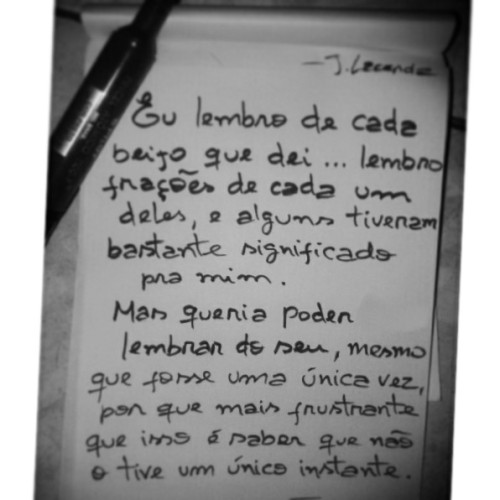 — J. Lacanda
Eu lembro de cada
beijo que dei ... lembro
frações de cada um
deles, e alguns tiveram
bastante significado
pra mim.
Mas queria poder
lembrar do seu, mesmo
que fosse uma única vez,
por que mais frustrante
que isso é saber que não
o tive um único instante.